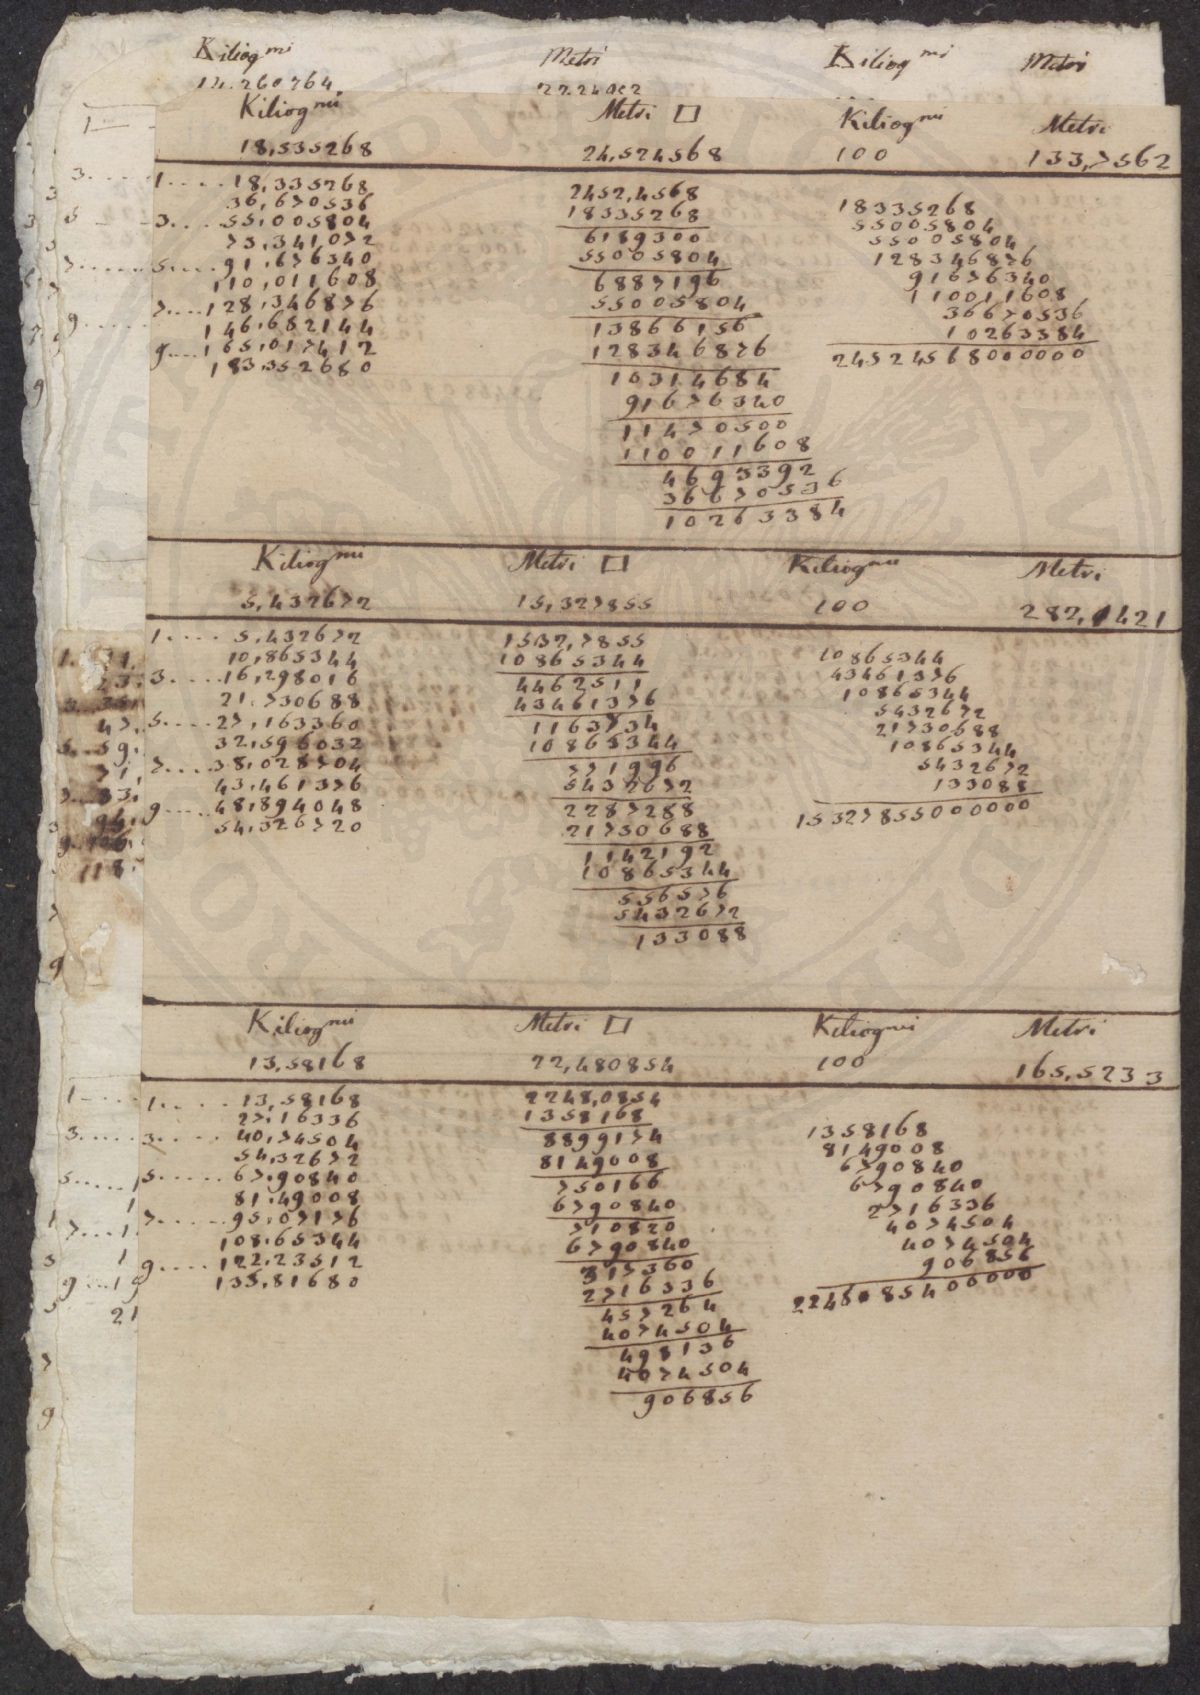 Kiliogmi Metri Kiliogmi Metri
Kiliogmi Metri □ Kiliogmi Metri
18,335268 24,524568 100 133,7562
1.....18,335268
36,670536
3.....55,005804
73,341072
5.....91,676340
110,011608
7.....128,346876
146,682144
9.....165,017412
183,352680
2452,4568
18335268
6189300
55005804
6887196
55005804
13866156
128346876
10314684
91676340
11470500
110011608
4693392
36670536
10263384
18335268
55005804
55005804
128346876
91676340
110011608
36670536
10263384
2452456800000
Kiliogmi Metri □ Kiliogmi Metri
5,432672 15,327855 100 282,1421
1.....5,432672
10,865344
3.....16,298016
21,730688
5.....27,163360
32,596032
7.....38,028704
43,461376
9.....48,894048
54,326720
1532,7855
10865344
4462511
43461376
1163734
10865344
771996
5432672
2287288
21730688
1142192
10865344
556576
5432672
133088
10865344
43461376
10865344
5432672
21730688
10865344
5432672
133088
1532785500000​0
Kiliogmi Metri □ Kiliogmi Metri
13,58168 22,480854 100 165,5233
1.....13,58168
27,16336
3.....40,74504
54,32672
5.....67,90840
81,49008
7.....95,07176
108,65344
9.....122,23512
135,81680
2248,0854
1358168
8899174
8149008
750166
6790840
710820
6790840
317360
2716336
457264
4074504
498136
4074504
906856
1358168
8149008
6790840
6790840
2716336
4074504
4074504
906856
224808540​0000